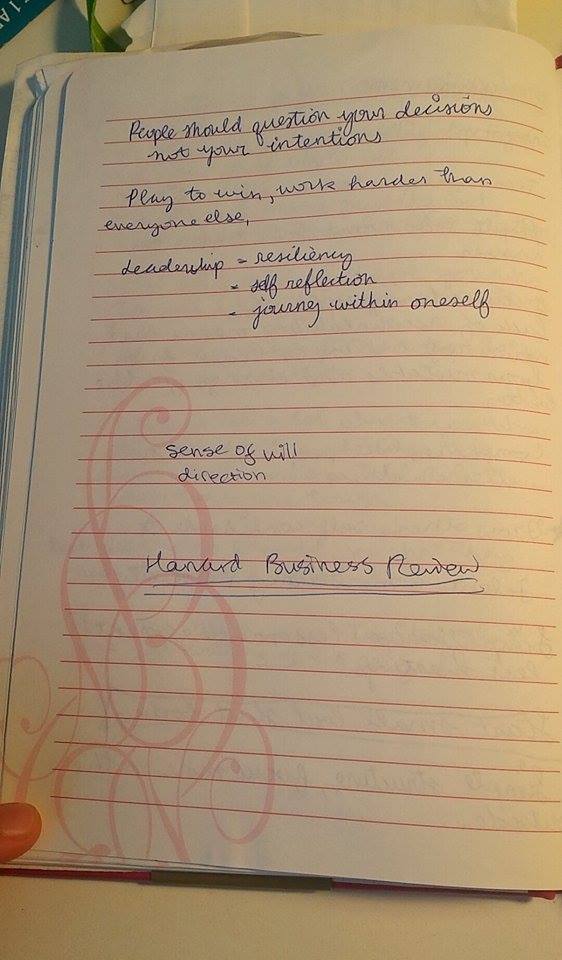 People should question your decisions
not your intentions
Play to win, work harder than
everyone else,
Leadership = resiliency
= self reflection
- journey within oneself
sense of will
direction
Harvard Business Review